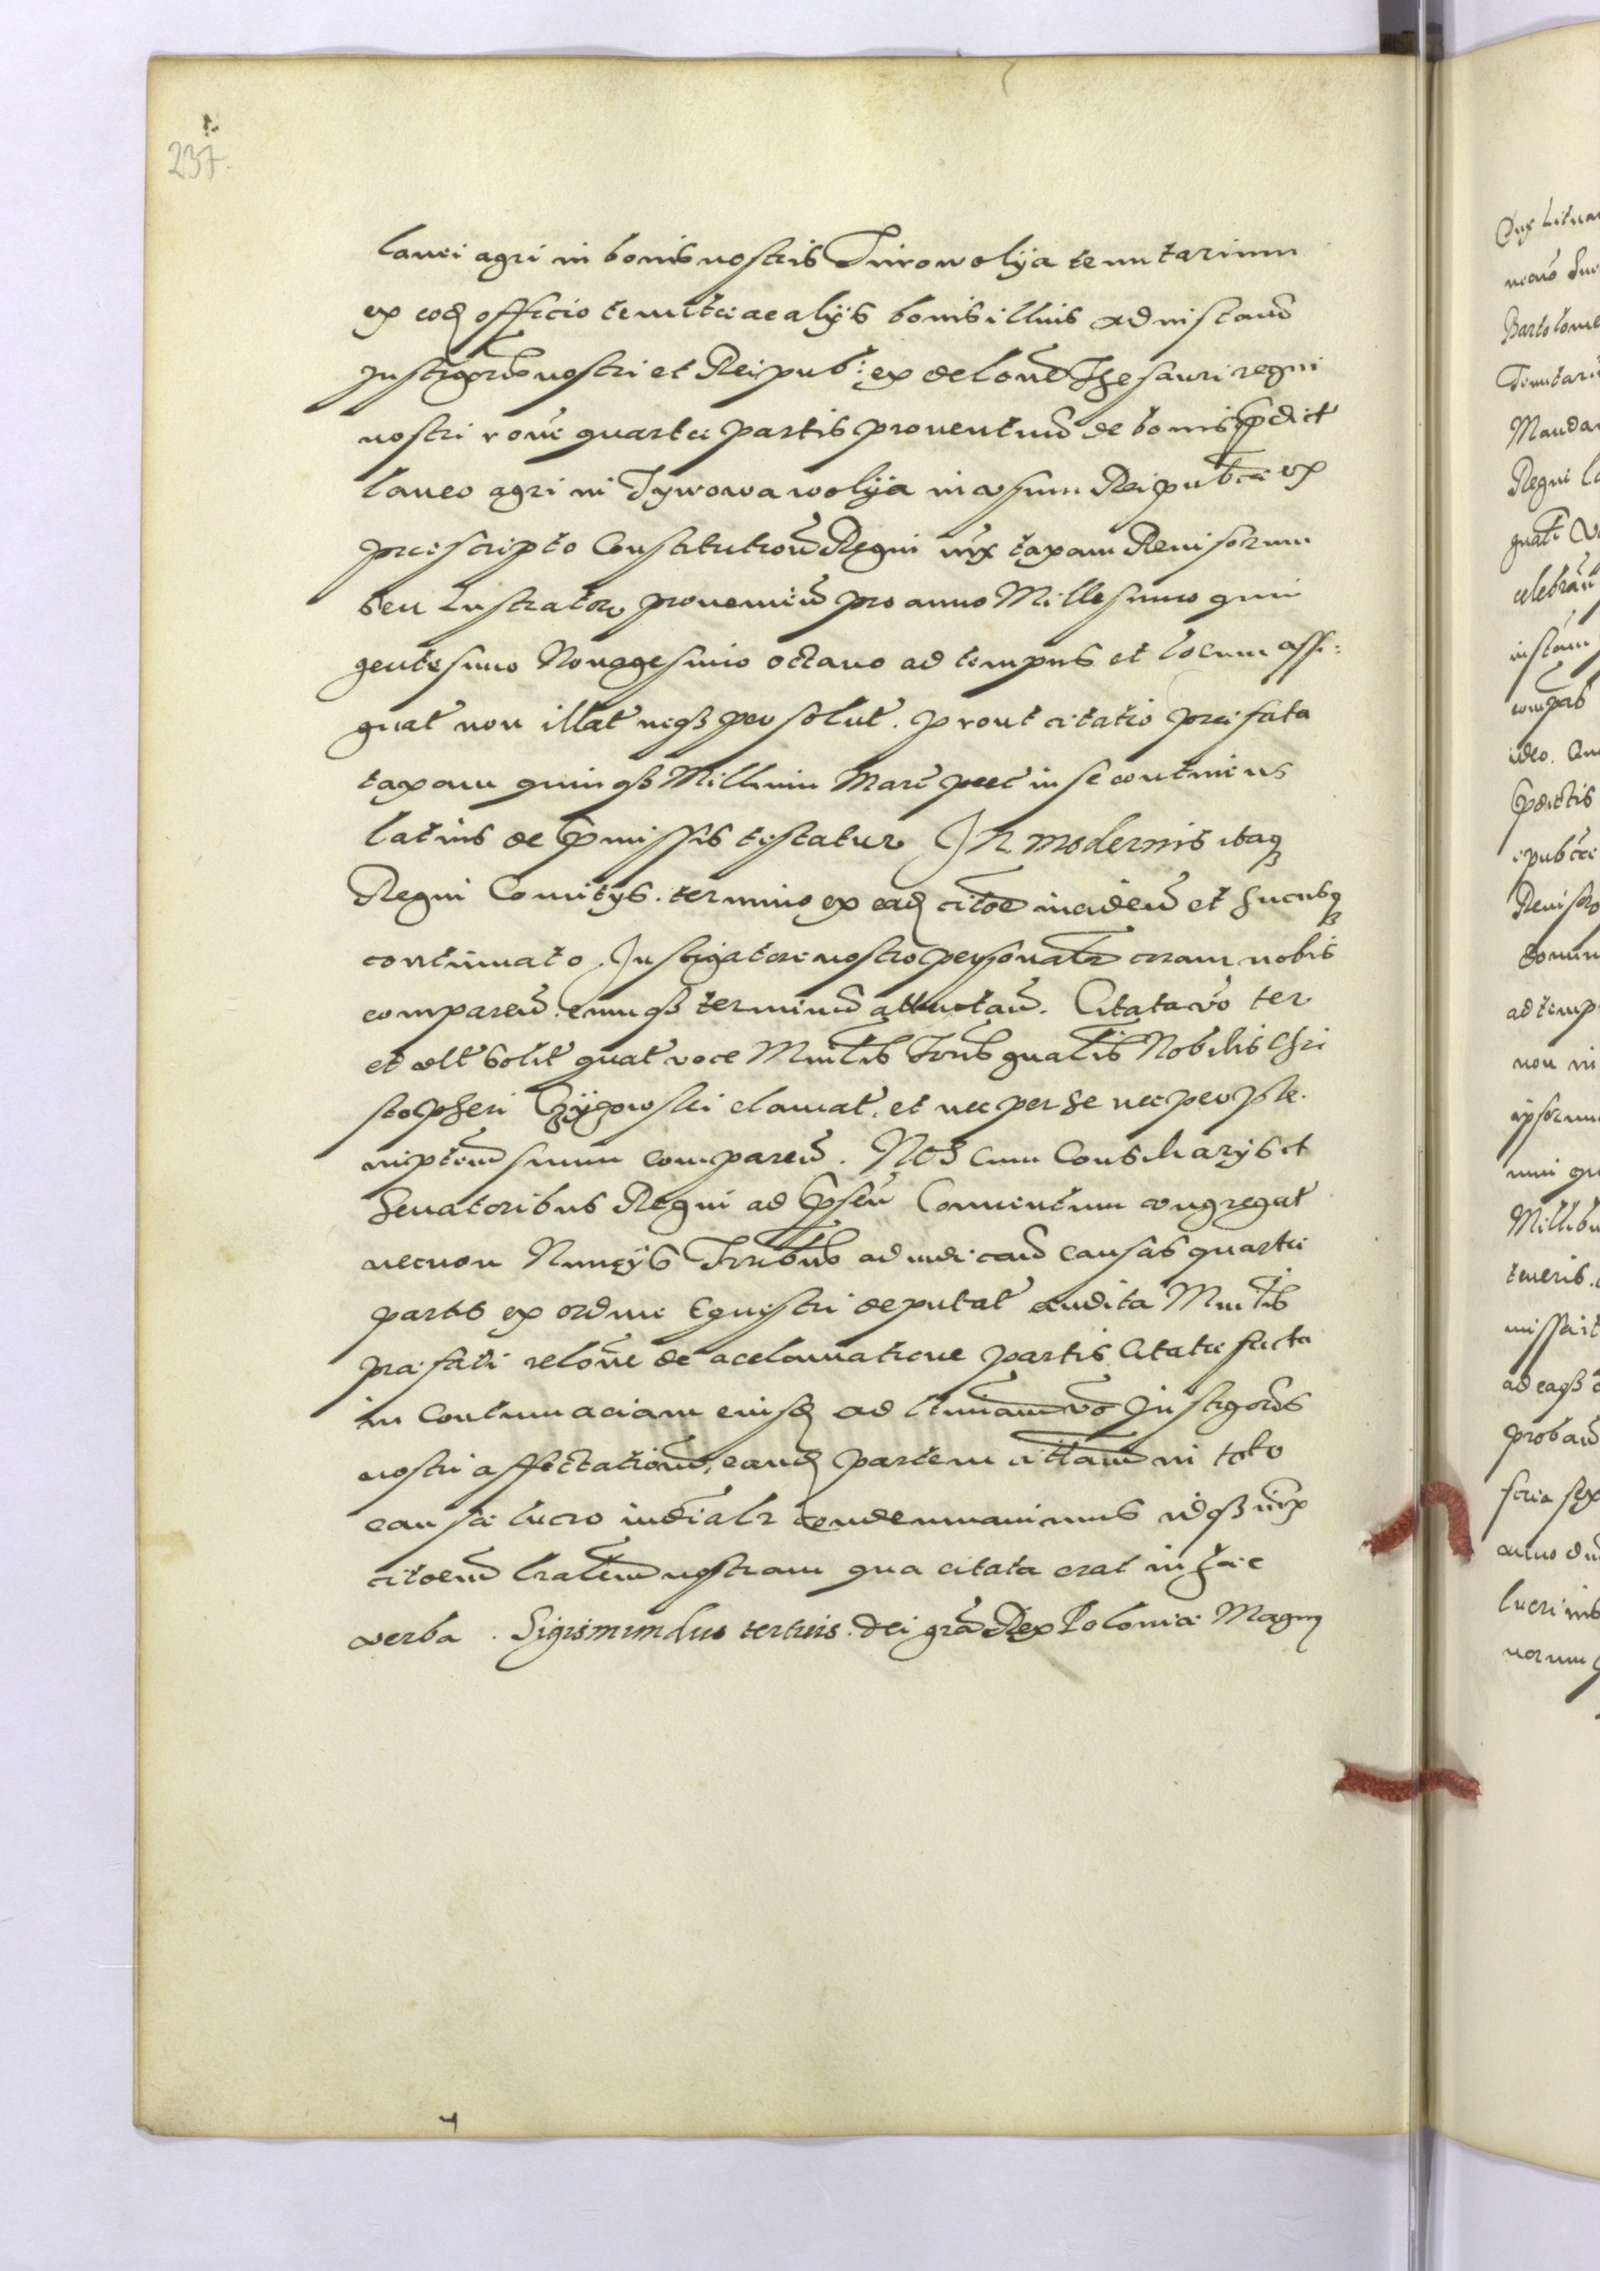 237
lanei agri in bonis nostris Turowolija tenutarium
ex eoq officio tenutae ac alijs bonis illius ad instand
Instigoris nostri et Reipub: ex delone Thesauri regni
nostri rone quartae partis prouentuum de bonis pdict
laneo agri in Tyrowa wolija in usum Reipubcae ex
praescripto Constitutionu Regni iux taxam Reuisorum
seu Lustrator prouenien pro anno Millesimo quin
gentesimo Nonagesimo octauo ad tempus et locum assi:
gnat non illat neqz persolut. prout citatio praefata
taxam quinqz Millium Marc pec in se continens
latius de pmissis testatur In modernis itaqz
Regni Comitys. termino ex eaq citoe inciden et hucusqz
continuato. Instigatore nostro personalr coram nobis
comparen. eumqz terminu attentan. Citata vo ter
et ult solit quat voce Mintlis Trris gnalis Nobilis Chri
stopheri clamat. et nec per se nec per ple.
niptem suum comparen. Nos cum Consiliarys et
Senatoribus Regni ad psen Conuentum congregat
necnon Nuncys Trribus ad iudicand causas quartae
partis ex ordine Equestri deputat audita Mintlis
praefati relone de acclamatione partis Citatae facta
in Contumaciam eiusq ad Instigoris
nostri affectationem, eandq partem cittam in toto
causae lucro iudicialr condemnauimus idqz iux
citoem lralem nostram qua citata erat in haec
verba. Sigismundus tertius. Dei gra Rex Poloniae Magnq
Dux Lituan
Bartolome
Tenutari
Manda
Regni la
celebran
instan
ideo.
pdictis
ipubcae
Reuisor
ad temp
non in
ipsorum
Millibu
teneris.
probaru
lucri